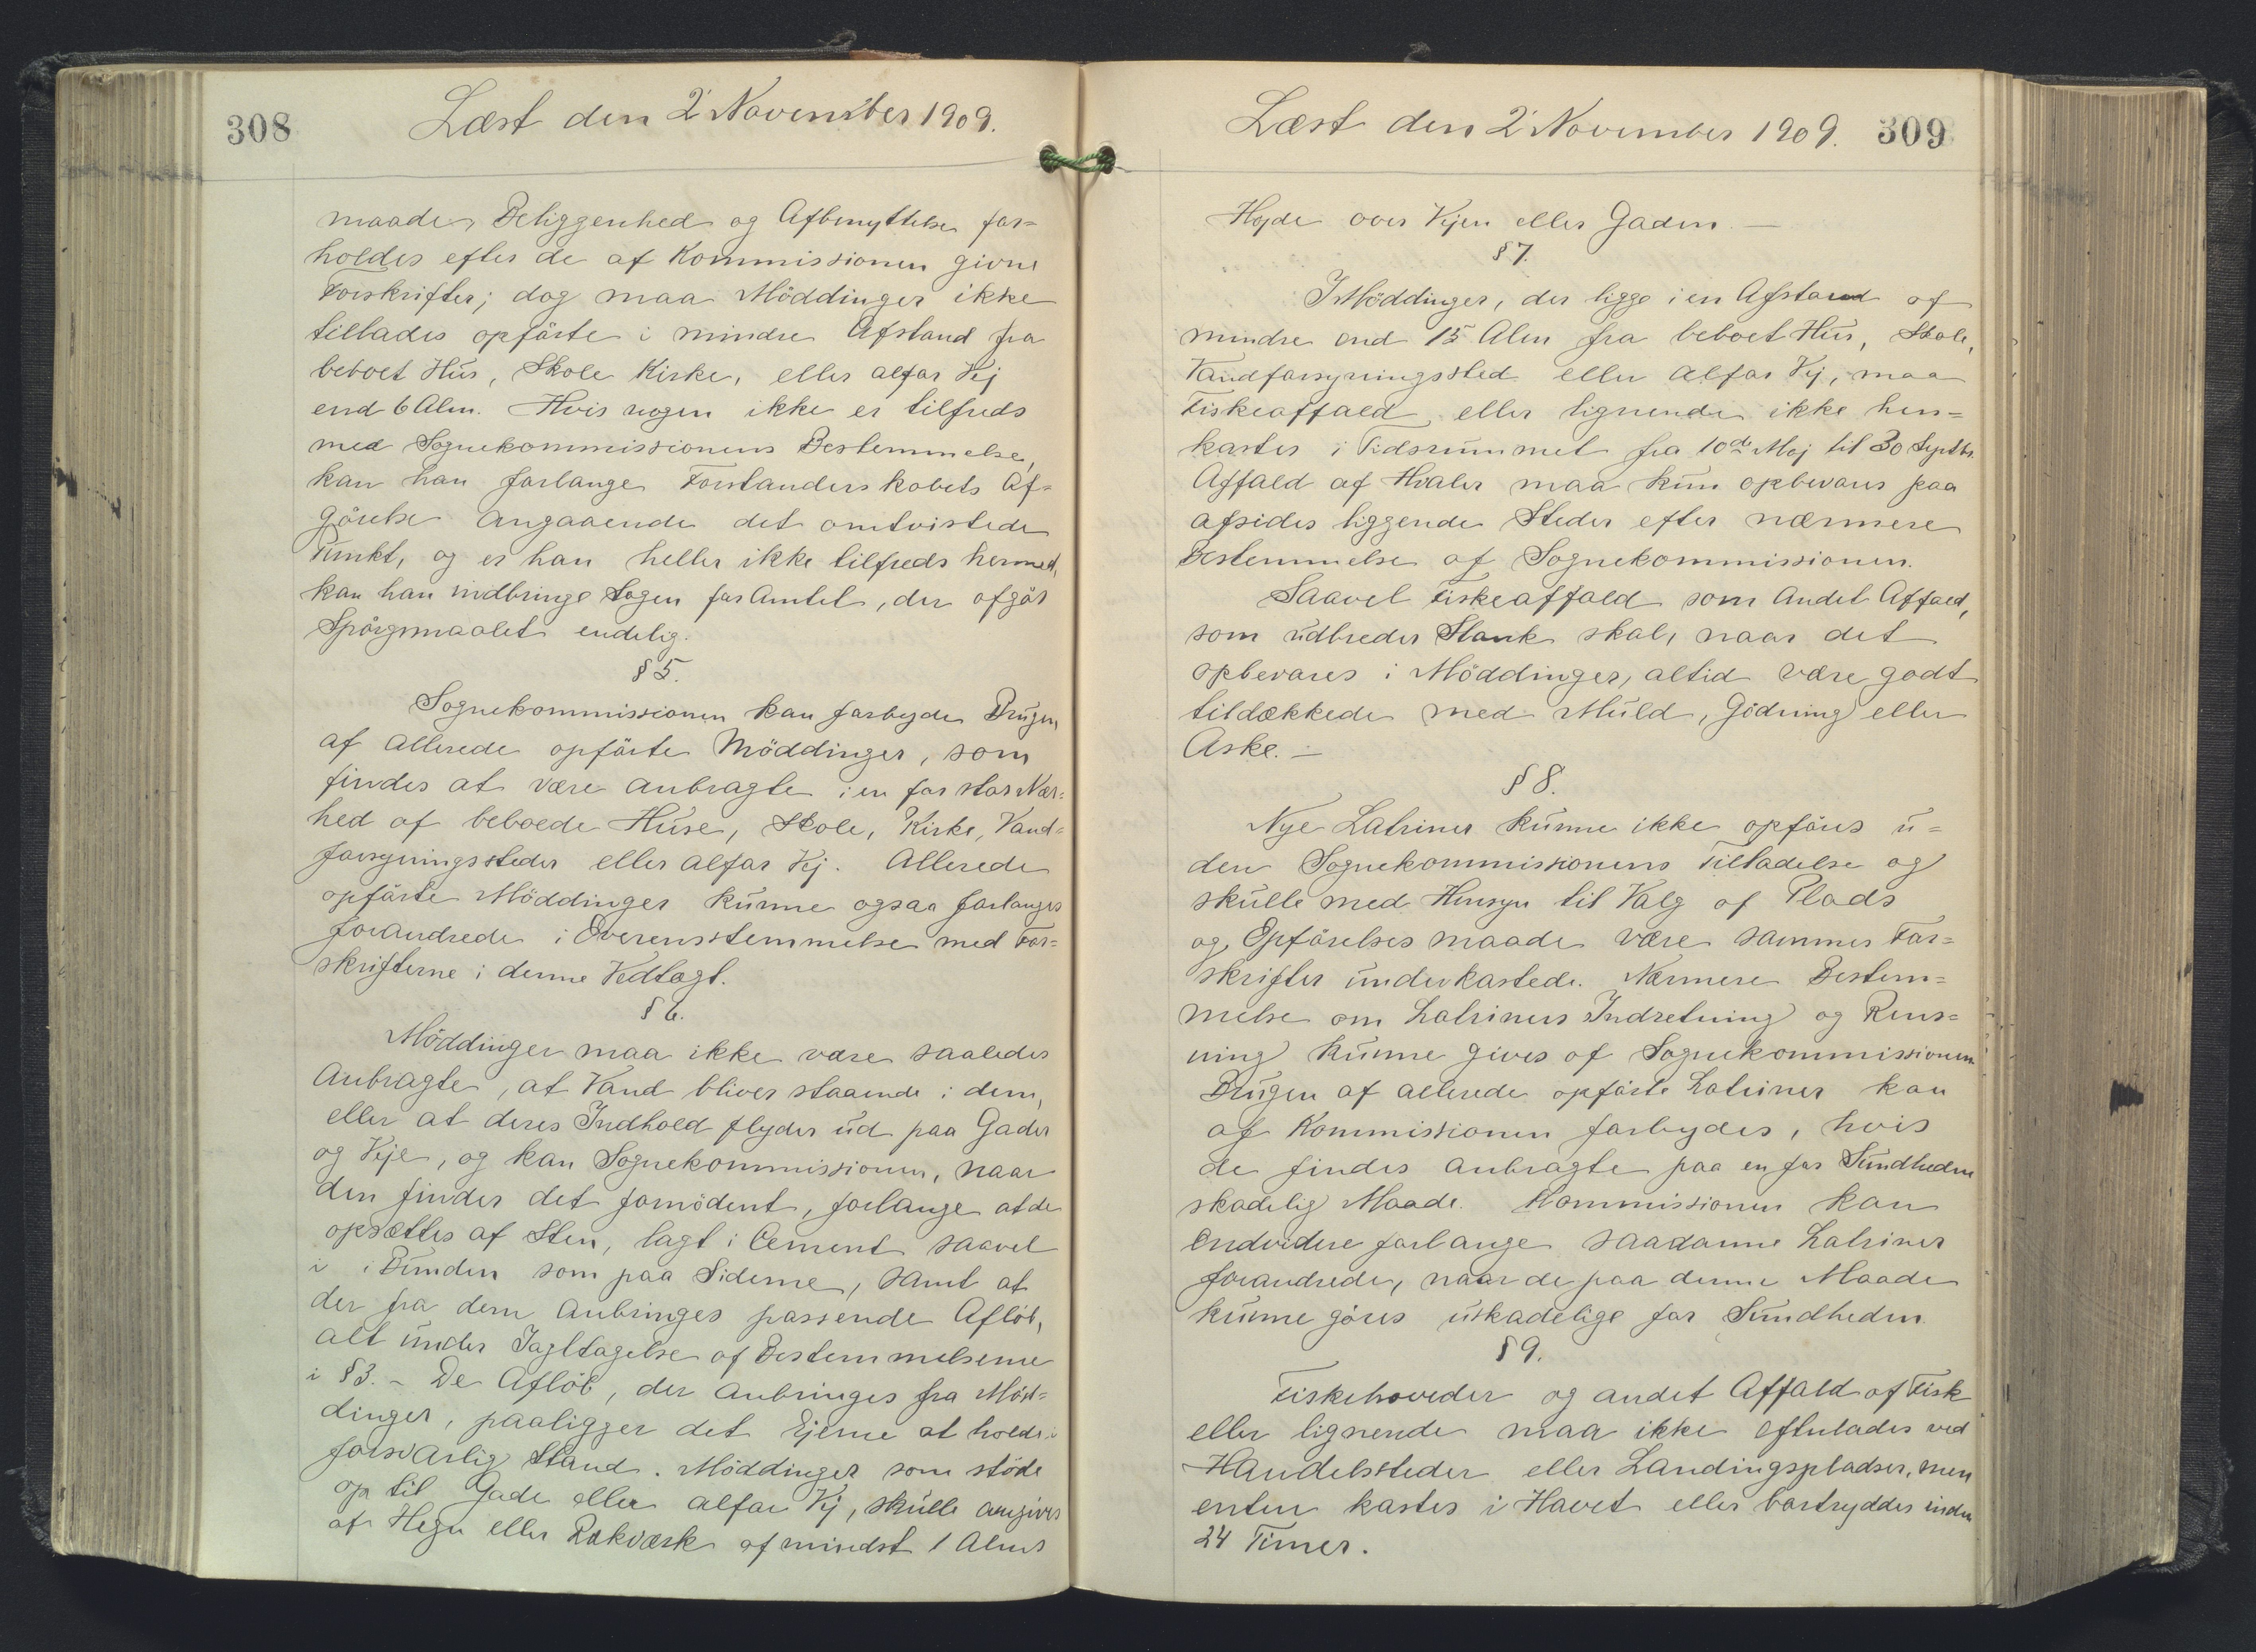 308
Læst den 2' November 1909.
maade, Beliggenhed og Afbenyttelse for=
holdes efter de af Kommissionen givne
Forskrifter; dog maa Möddinger ikke
tillades opförte i mindre Afstand fra
beboet Hus, Skole Kirke, eller alfar Vej
end 6 Alen. Hvis nogen ikke er tilfreds
med Sognekommissionens Bestemmelse,
kan han forlange Forstanderskabets Af=
görelse angaaende det omtvistede
Punkt, og er han heller ikke tilfreds hermed,
kan han indbringe Sagen for Amtet, der afgör
Spörgsmaalet endelig.
§ 5.
Sognekommissionen kan forbyde Brugen
af allerede opförte Möddinger, som
findes at være anbragte i en for stor Nær=
hed af beboede Huse, Skole, Kirke, Vand=
forsyningssteder eller alfar Vej. Allerede
opförte Möddinger kunne ogsaa forlanges
forandrede i Overensstemmelse med For=
skrifterne i denne Vedtægt.
§ 6.
Möddinger maa ikke være saaledes
Anbragte, at Vand bliver staaende i dem,
eller at deres Indhold flyder ud paa Gader
og Veje, og kan Sognekommissionen, naar
den finder det fornödent, forlange at de
opsættes af Sten, lagt i Cement saavel
i i Bunden som paa Siderne, samt at
der fra dem anbringes passende Aflöb,
alt under Iagttagelse af Bestemmelserne
i § 3. - De Aflöb, der anbringes fra Möd=
dinger, paaligger det Ejerne at holde i
forsvarlig Stand. Möddinger som støde
op til Gade eller alfar Vej, skulle omgives
af Hegn eller Rakværk af mindst 1 Alens
Læst den 2' November 1909. 309
Højde over Vejen eller Gaden. —
§ 7.
I Möddinger, der ligge i en Afstand af
mindre end 15 Alen fra beboet Hus, Skole,
Vandforsyningssted eller Alfar Vej, maa
Fiskeaffald eller lignende ikke hen=
kastes i Tidsrummet fra 10de Maj til 30 Septbr.
Affald af Hvaler maa kun opbevares paa
afsides liggende Steder efter nærmere
Bestemmelse af Sognekommissionen.
Saavel Fiskeaffald som Andet Affald,
som udbreder Stank skal, naar det
opbevares i Möddinger, altid være godt
tildækkede med Muld, Gödning eller
Aske. —
§ 8.
Nye Latriner kunne ikke opföres u=
den Sognekommissionens Tilladelse og
skulle med Hensyn til Valg af Plads
og Opförelsesmaade være sammes For=
skrifter underkastede. Nærmere Bestem=
melse om Latriners Indretning og Rens=
ning kunne gives af Sognekommissionen
Brugen af allerede opförte Latriner kan
af Kommissionen forbydes, hvis
de findes anbragte paa en for Sundheden
skadelig Maade. Kommissionen kan
endvidere forlange saadanne Latriner
forandrede, naar de paa denne Maade
kunne göres uskadelige for Sundheden.
§ 9.
Fiskehoveder og andet Affald af Fisk
eller lignende maa ikke efterlades ved
Handelssteder eller Landingspladser, men
enten kastes i Havet eller bortryddes inden
24 Timer.